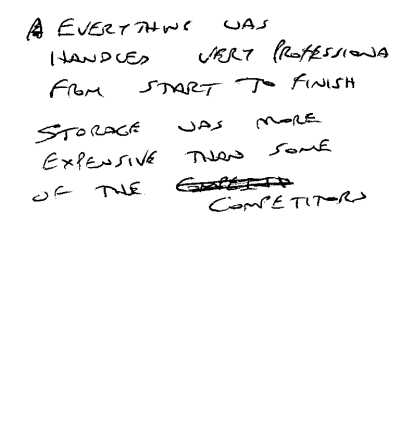 EVERYTHING WAS
HANDLED VERY PROFESSIONA
FROM START TO FINISH
STORAGE WAS MORE
EXPENSIVE THAN SOME
OF THE
COMPETITORS